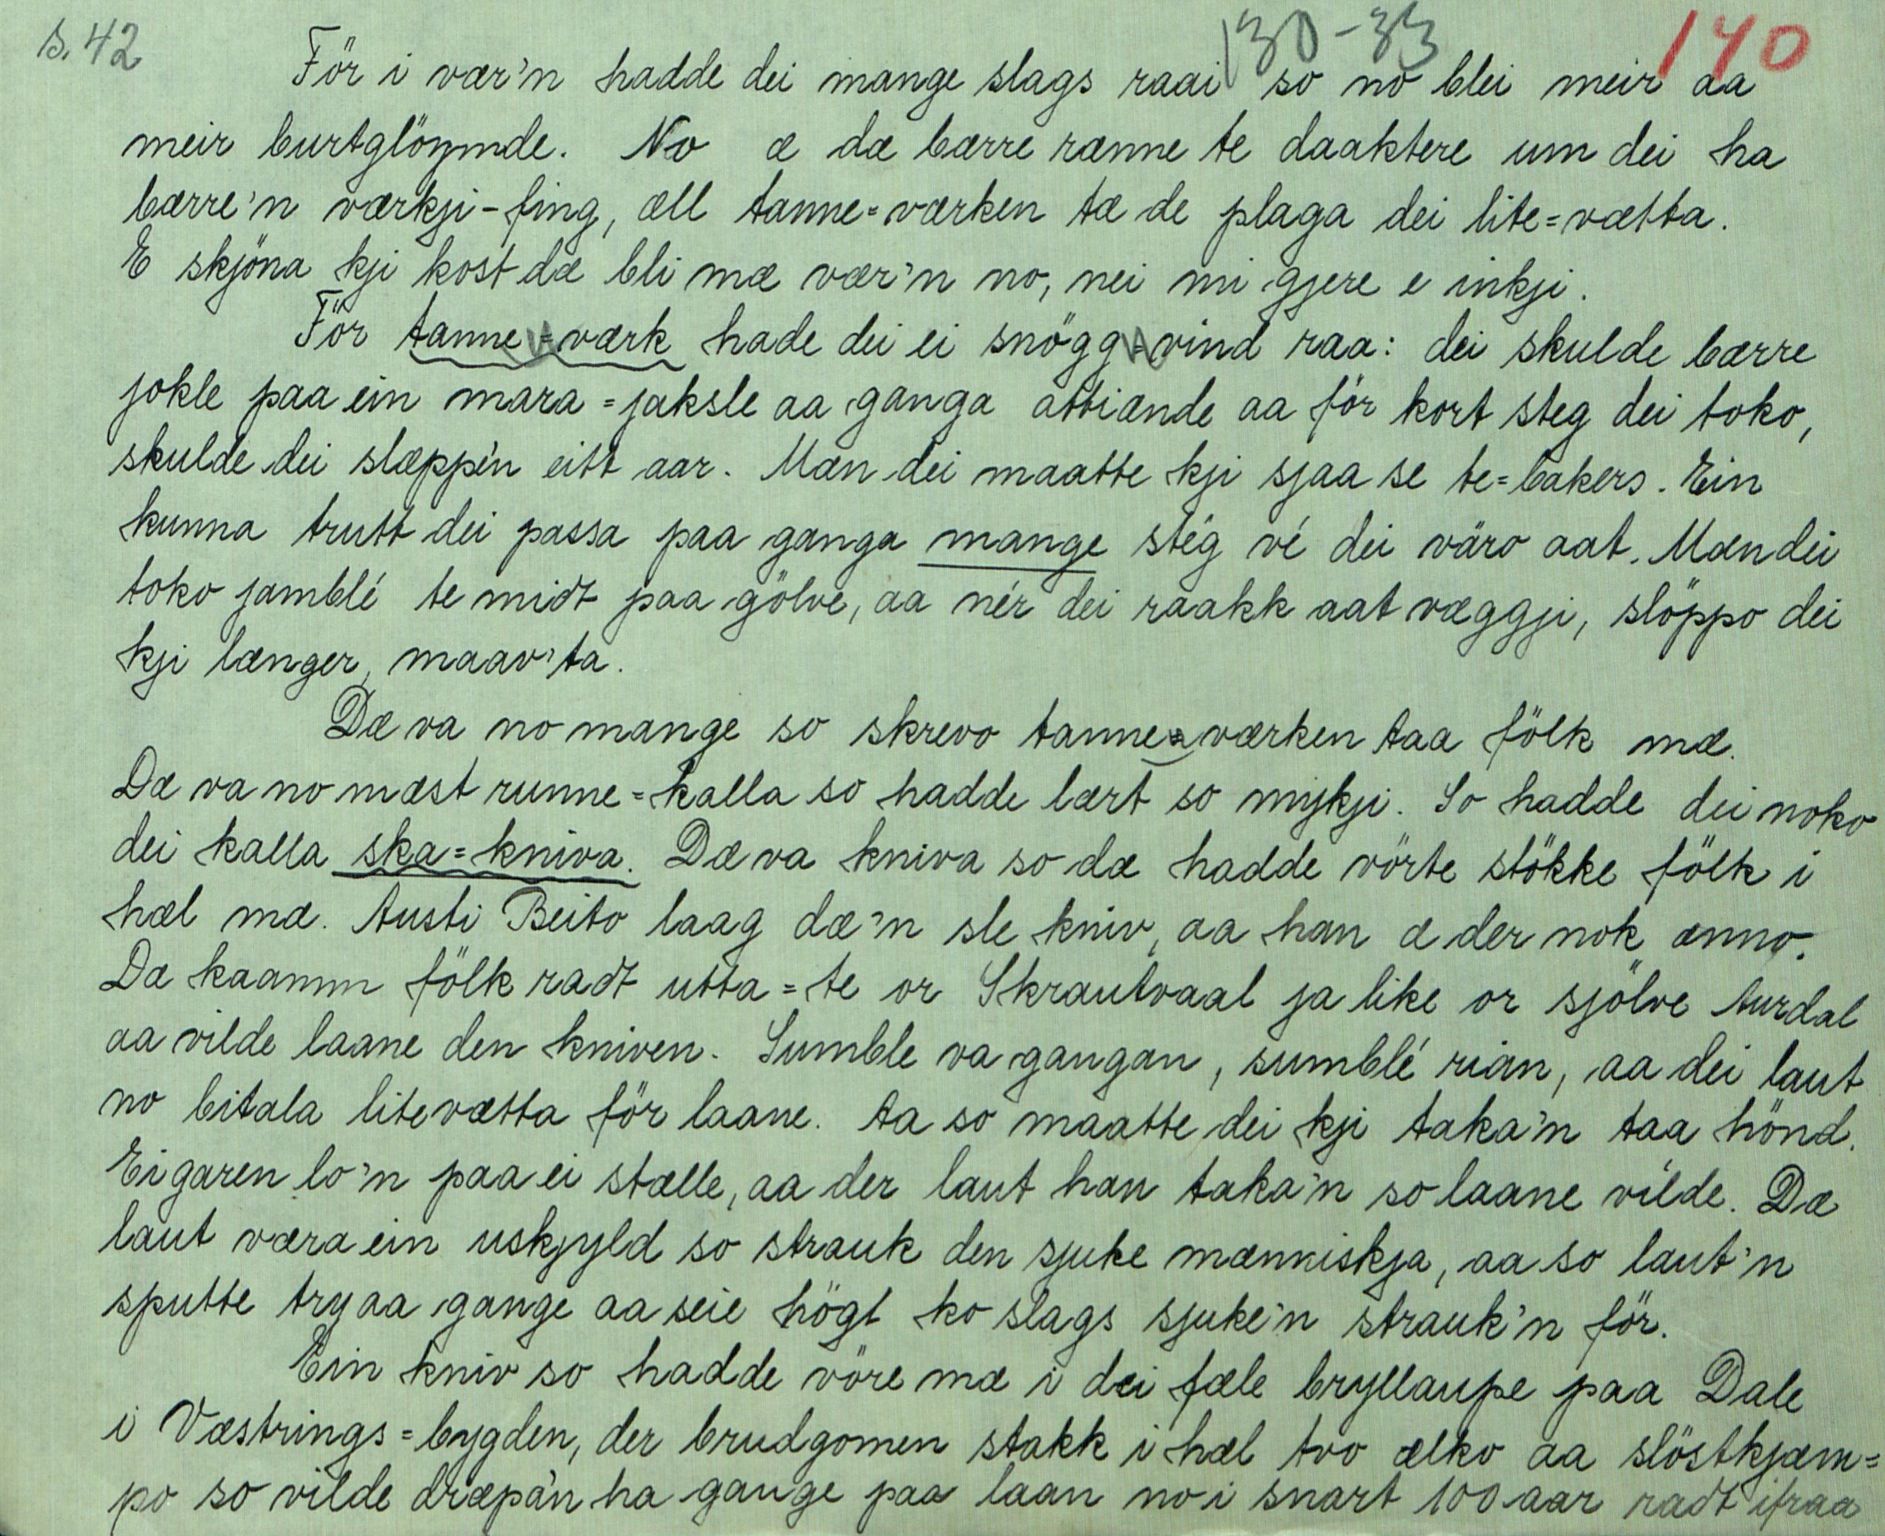 s. 42
130-33
140
För i vær'n hadde dei mange slags raai so no blei meir aa
meir burtglöymde. No æ dæ bærre rænne te daaktere um dei ha
bærre'n værkji-fing, æll tanne=værken tæ de plaga dei lite=vætta.
E skjöna kji kost dæ bli mæ vær'n no, nei mi gjere e inkji.
För tanne=værk hade dei ei snögg=vind raa: dei skulde bærre
jokle paa ein mara=jaksle aa ganga attiænde aa för kort steg dei toko,
skulde dei slæppe'n eitt aar. Mæn dei maatte kji sjaa se te=bakers. Ein
kunna trutt dei passa paa ganga mange stég vé dei väro aat. Mæn dei
toko jamblé te midt paa gölve, aa nér dei raakk aat væggji, slöppo dei
kji længer, maav'ta.
Dæ va no mange so skrevo tanne=værken taa fölk mæ.
Dæ va no mæst runne=kalla so hadde lært so mykji. So hadde dei noko
dei kalla ska=kniva. Dæ va kniva so dæ hadde vörte stökke fölk i
hæl mæ. Austi Beito laag dæ'n sle kniv, aa han æ der nok ænno.
Dæ kaamm fölk radt utta=te or Skrautvaal ja like or sjölve Aurdal
aa vilde laane den kniven. Sumble va gangan, sumblé rian, aa dei laut
no bitala litevætta för laane. Aa so maatte dei kji taka'n taa hönd.
Eigaren lo'n paa ei stælle, aa der laut han taka'n so laane vilde. Dæ
laut væra ein uskjyld so strauk den sjuke mænniskja, aa so laut'n
sputte try aa gange aa seie högt ko slags sjuke'n strauk'n för.
Ein kniv so hadde vöre mæ i dei fæle bryllaupe paa Dale
i Væstrings=bygden, der brudgomen stakk i hæl tvo ælko aa slöstkjæm=
po so vilde dræpa'n ha gange paa laan no i snart 100 aar radt ifraa